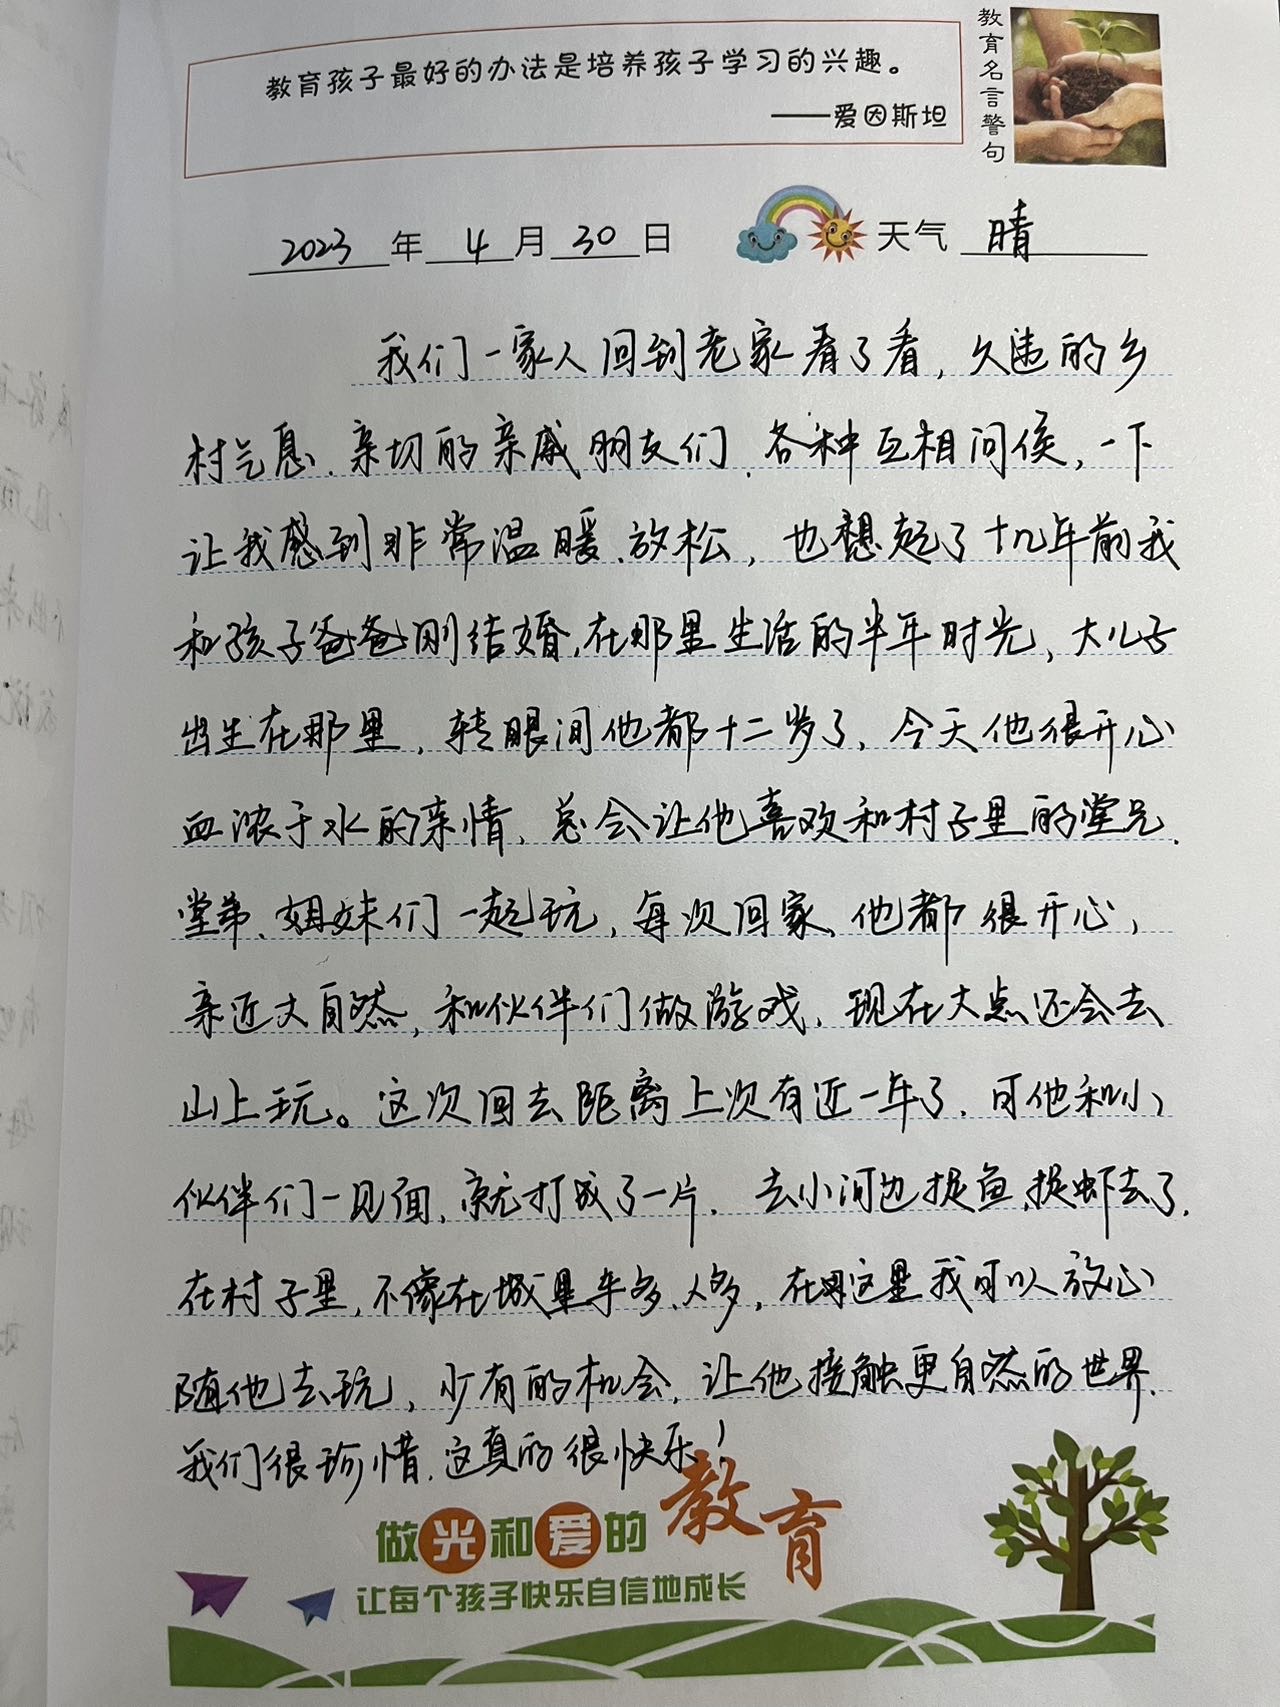 教育孩子最好的办法是培养孩子学习的兴趣。
——爱因斯坦
教育名言警句
2023年4月30日 天气 晴
我们一家人回到老家看了看,久违的乡
村气息、亲切的亲戚朋友们、各种互相问侯,一下
让我感到非常温暖、放松,也想起了十几年前我
和孩子爸爸刚结婚,在那里生活的半年时光,大儿子
出生在那里,转眼间他都十二岁了,今天他很开心
血浓于水的亲情,总会让他喜欢和村子里的堂兄、
堂弟、姐妹们一起玩,每次回家,他都很开心,
亲近大自然,和伙伴们做游戏,现在大点还会去
山上玩。这次回去距离上次有近一年了,可他和小
伙伴们一见面,就打成了一片,去小河边捉鱼、捉虾去了,
在村子里,不像在城里车多、人多,在这里我可以放心
随他去玩,少有的机会,让他接触更自然的世界,
我们很珍惜,这真的很快乐!
做光和爱的教育
让每个孩子快乐自信地成长